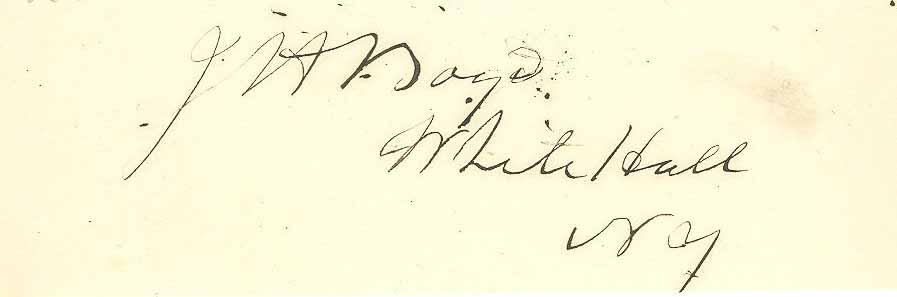 J. H. Boyd.
White Hall
N Y